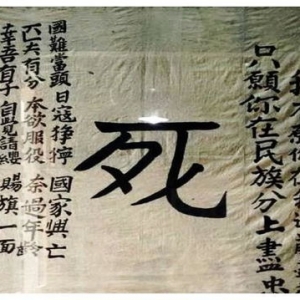 只願你在民族分上盡忠
死
國難當頭 日寇猙獰 國家興亡
匹夫有分 本欲服役 奈過年齡
幸吾有子 自覺請纓 賜旗一面